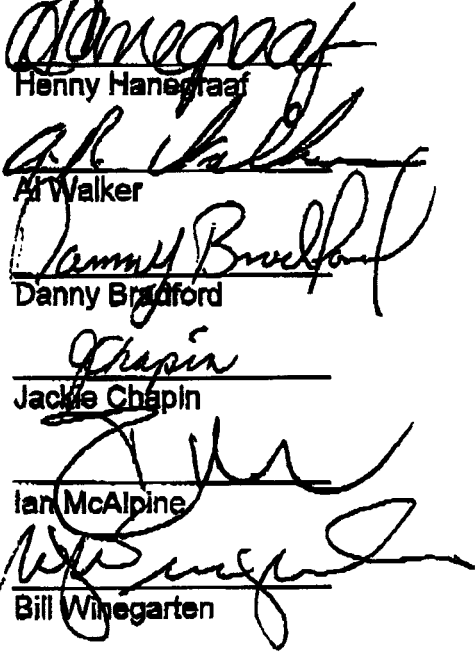 Hanegraaf
Henny Hanegraaf
A.R. Walker
Al Walker
Danny Bradford
Danny Bradford
J Chapin
Jackie Chapin
Ian McAlpine
Bill Winegarten